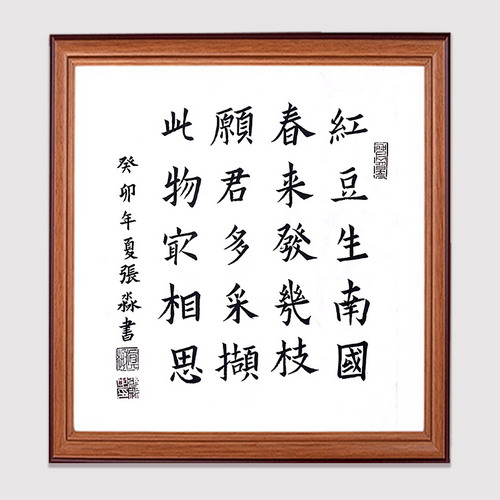 紅豆生南國
春来發幾枝
願君多采擷
此物㝡相思
癸卯年夏張淼書